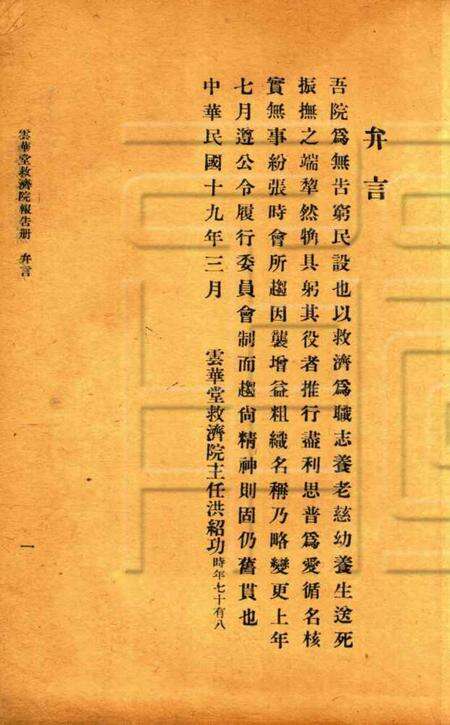 弁言
吾院爲無告窮民設也以救濟爲職志養老慈幼養生送死
振撫之端犖然猶具躬其役者推行盡利思普爲愛循名核
實無事紛張時會所趨因襲增益粗織名稱乃略變更上年
七月遵公令履行委員會制而趨尙精神則固仍舊貫也
中華民國十九年三月
雲華堂救濟院主任洪紹功時年七十有八
雲華堂救濟院報告册 弁言
一